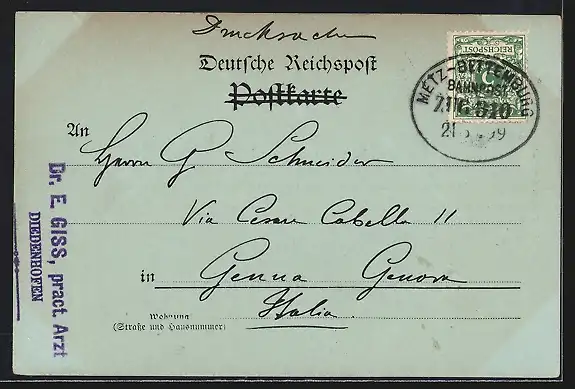 Drucksache
Deutsche Reichspost
Postkarte
REICHSPOST
METZ-BETTEMBURG
BAHNPOST
ZUG 310
An
Herrn G Schneider
Via Cesare Cabella 11
in Genua Genova
Italia
Wohnung
(Straße und Hausnummer)
Dr. E. GISS, pract. Arzt
DIEDENHOFEN